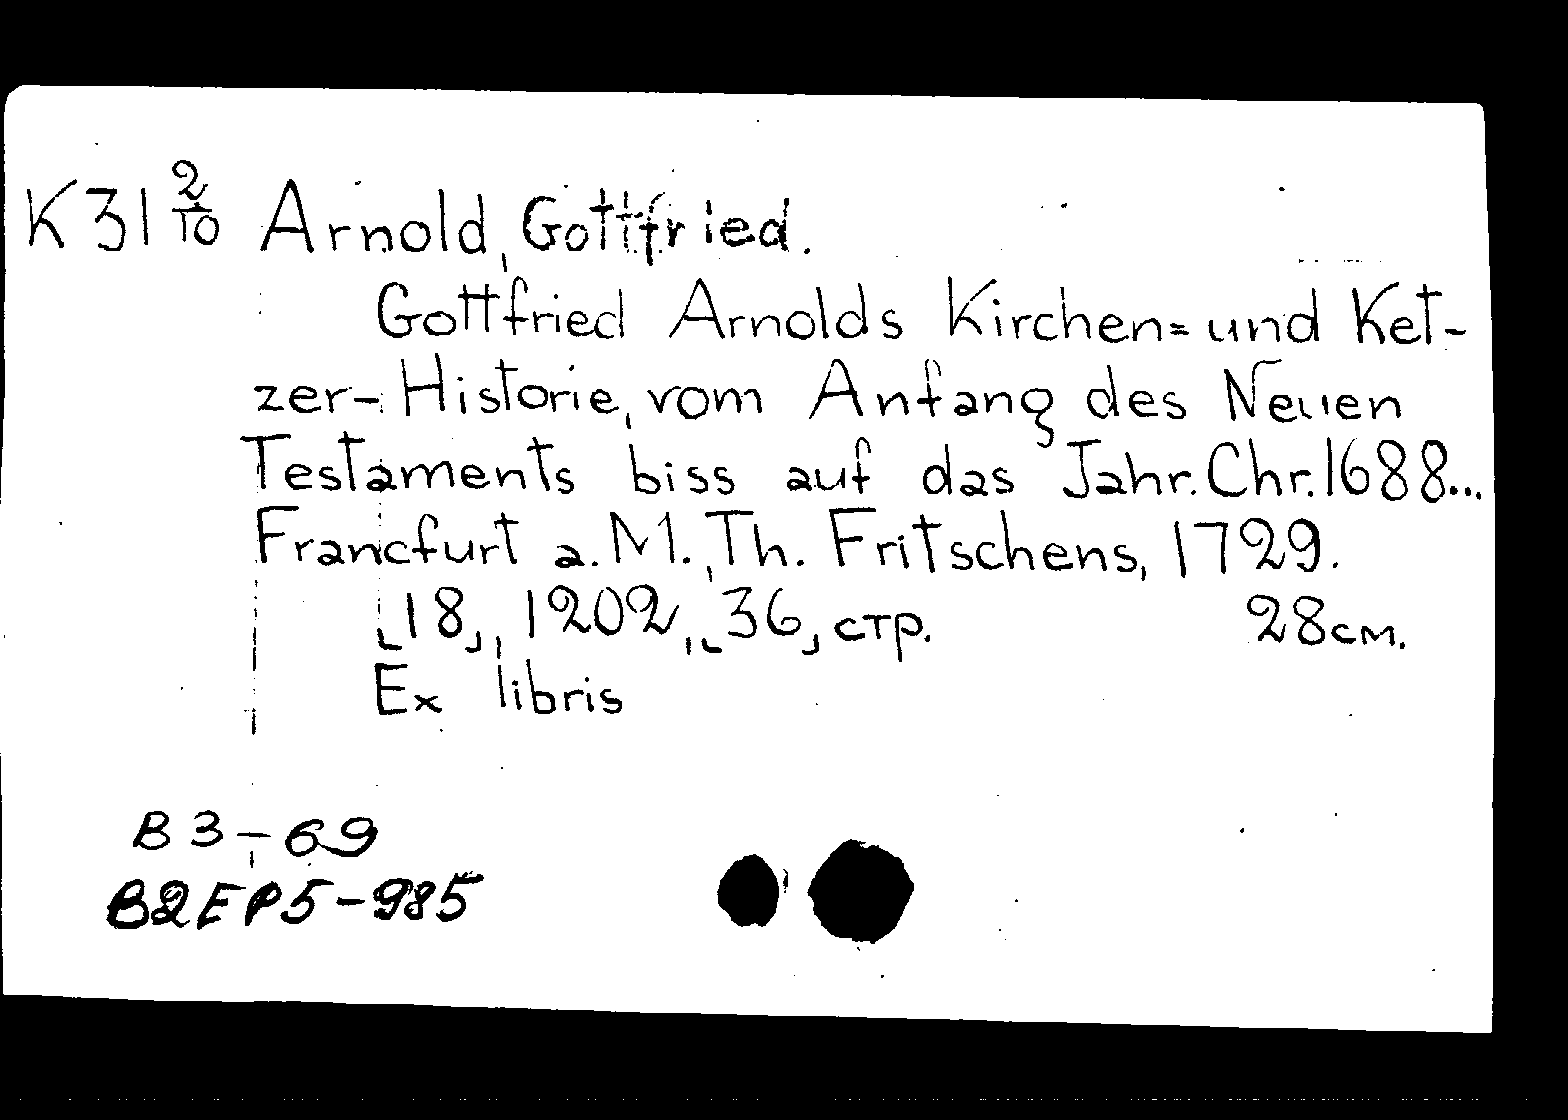 K31 2/10 Arnold, Gottfried.
Gottfried Arnolds Kirchen= und Ket-
zer-Historie, vom Anfang des Neuen
Testaments biss auf das Jahr. Chr. 1688...
Francfurt a. M., Th. Fritschens, 1729.
[18], 1202, [36] стр. 28см.
Ex libris
B3-69
B2EP5-985